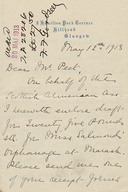 Hamilton Park Terrace
Hillhead
Glasgow
20 MAY 1918
May 15th 1918
Dear Mr Peet
On behalf of the
Scottish Armenian Assn.
I enclose draft
for Twenty five pounds
for Miss Salmond's
Orphanage at Marash.
Please send me one
of your receipt forms